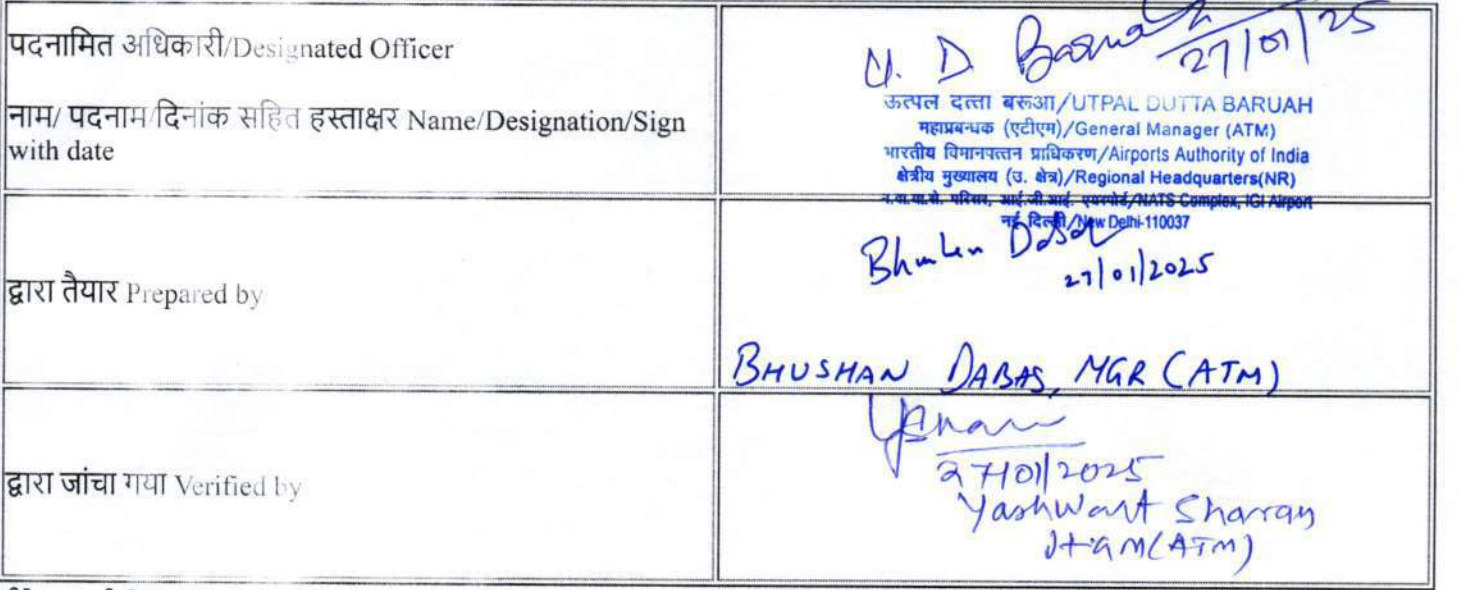 पदनामित अधिकारी/Designated Officer
नाम/ पदनाम/दिनांक सहित हस्ताक्षर Name/Designation/Sign
with date
U. D. Baruah
27/01/25
ऊत्पल दत्ता बरूआ/UTPAL DUTTA BARUAH
महाप्रबन्धक (एटीएम)/General Manager (ATM)
भारतीय विमानपत्तन प्राधिकरण/Airports Authority of India
क्षेत्रीय मुख्यालय (उ. क्षेत्र)/Regional Headquarters(NR)
न.वा.या.से. परिसर, आई.जी.आई. एयरपोर्ट/NATS Complex, IGI Airport
नई दिल्ली/New Delhi-110037
द्वारा तैयार Prepared by
Bhushan Dabas
27/01/2025
BHUSHAN DABAS, MGR (ATM)
द्वारा जांचा गया Verified by
27/01/2025
Yashwant Sharran
Jt.GM(ATM)